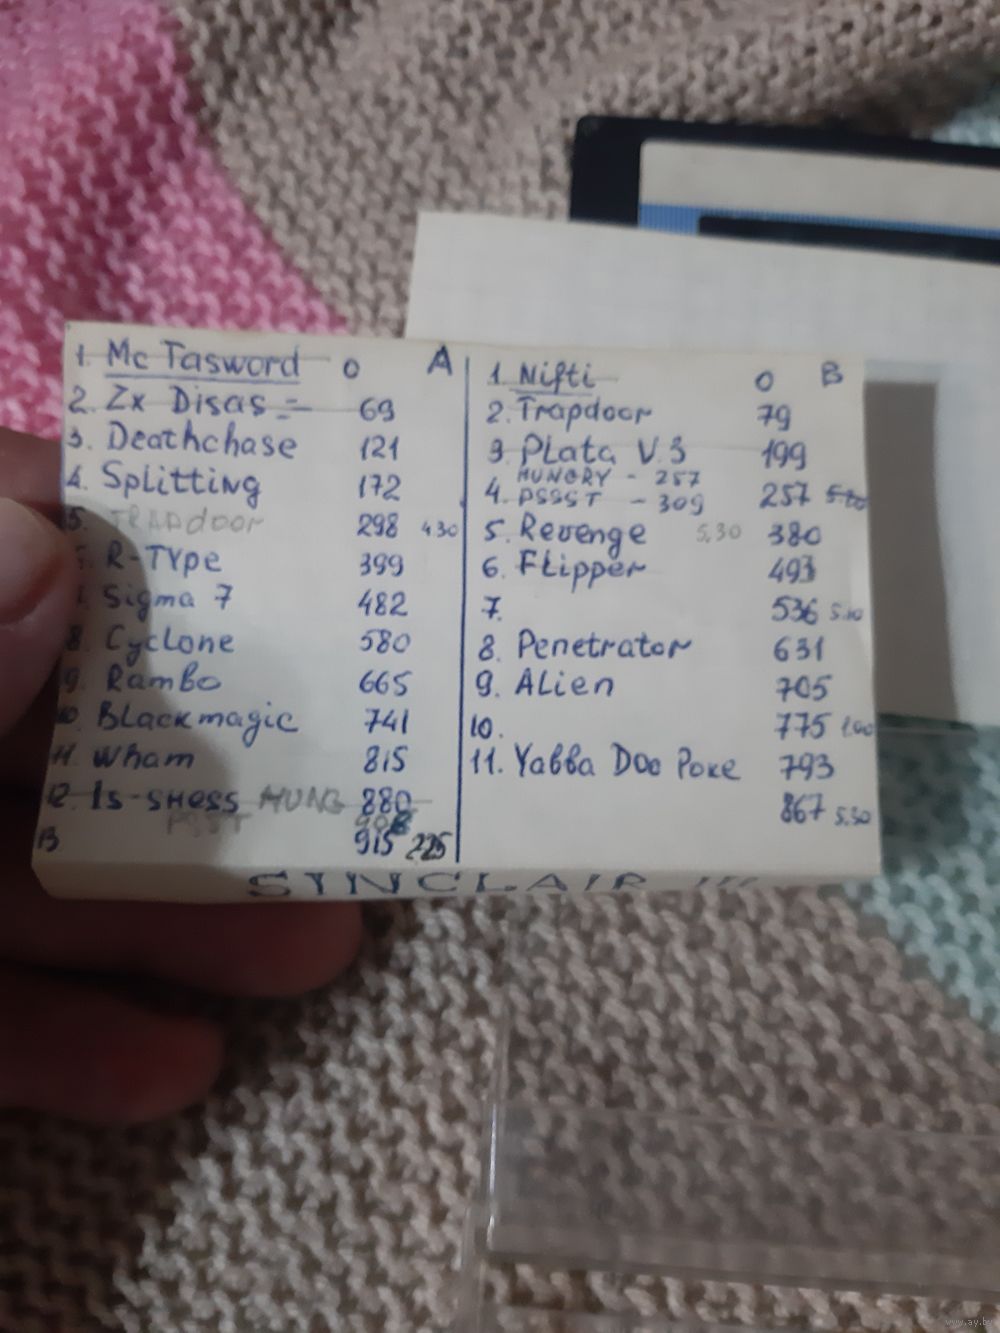 A
1. Mc Tasword 0
2. Zx Disas = 69
3. Deathchase 121
4. Splitting 172
5. TRAPdoor 298 430
6. R-TYpe 399
7. Sigma 7 482
8. Cyclone 580
9. Rambo 665
10. Blackmagic 741
11. Wham 815
12. Is-SHESS HUNG 880
PSST
13 915 225
B
1. Nifti 0
2. Trapdoor 79
3. Plata V.3 199
HUNGRY - 257
4. PSSST - 309 257
5. Revenge 5,30 380
6. Flipper 493
7. 536 5.10
8. Penetrator 631
9. Alien 705
10. 775 1.00
11. Yabba Doo Poxe 793
867 5.30
SINCLAIR !!!
www.ay.by